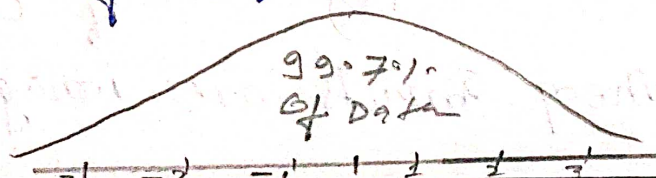 99.7%
Of Data
-2 -1 1 2 3